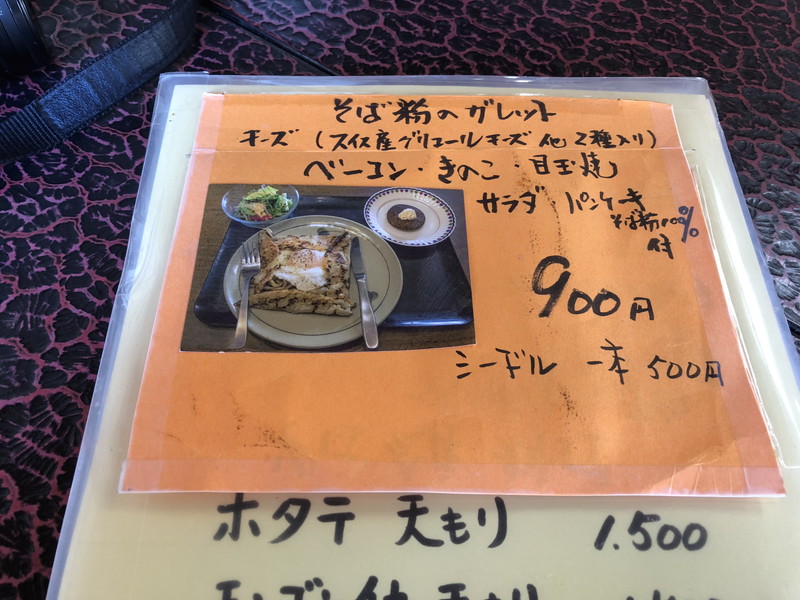 そば粉のガレット
チーズ (スイス産グリュエールチーズ 他 2種入り)
ベーコン・きのこ・目玉焼
サラダ パンケーキ
そば粉100%
付
900円
シードル 一本 500円
ホタテ 天もり 1.500